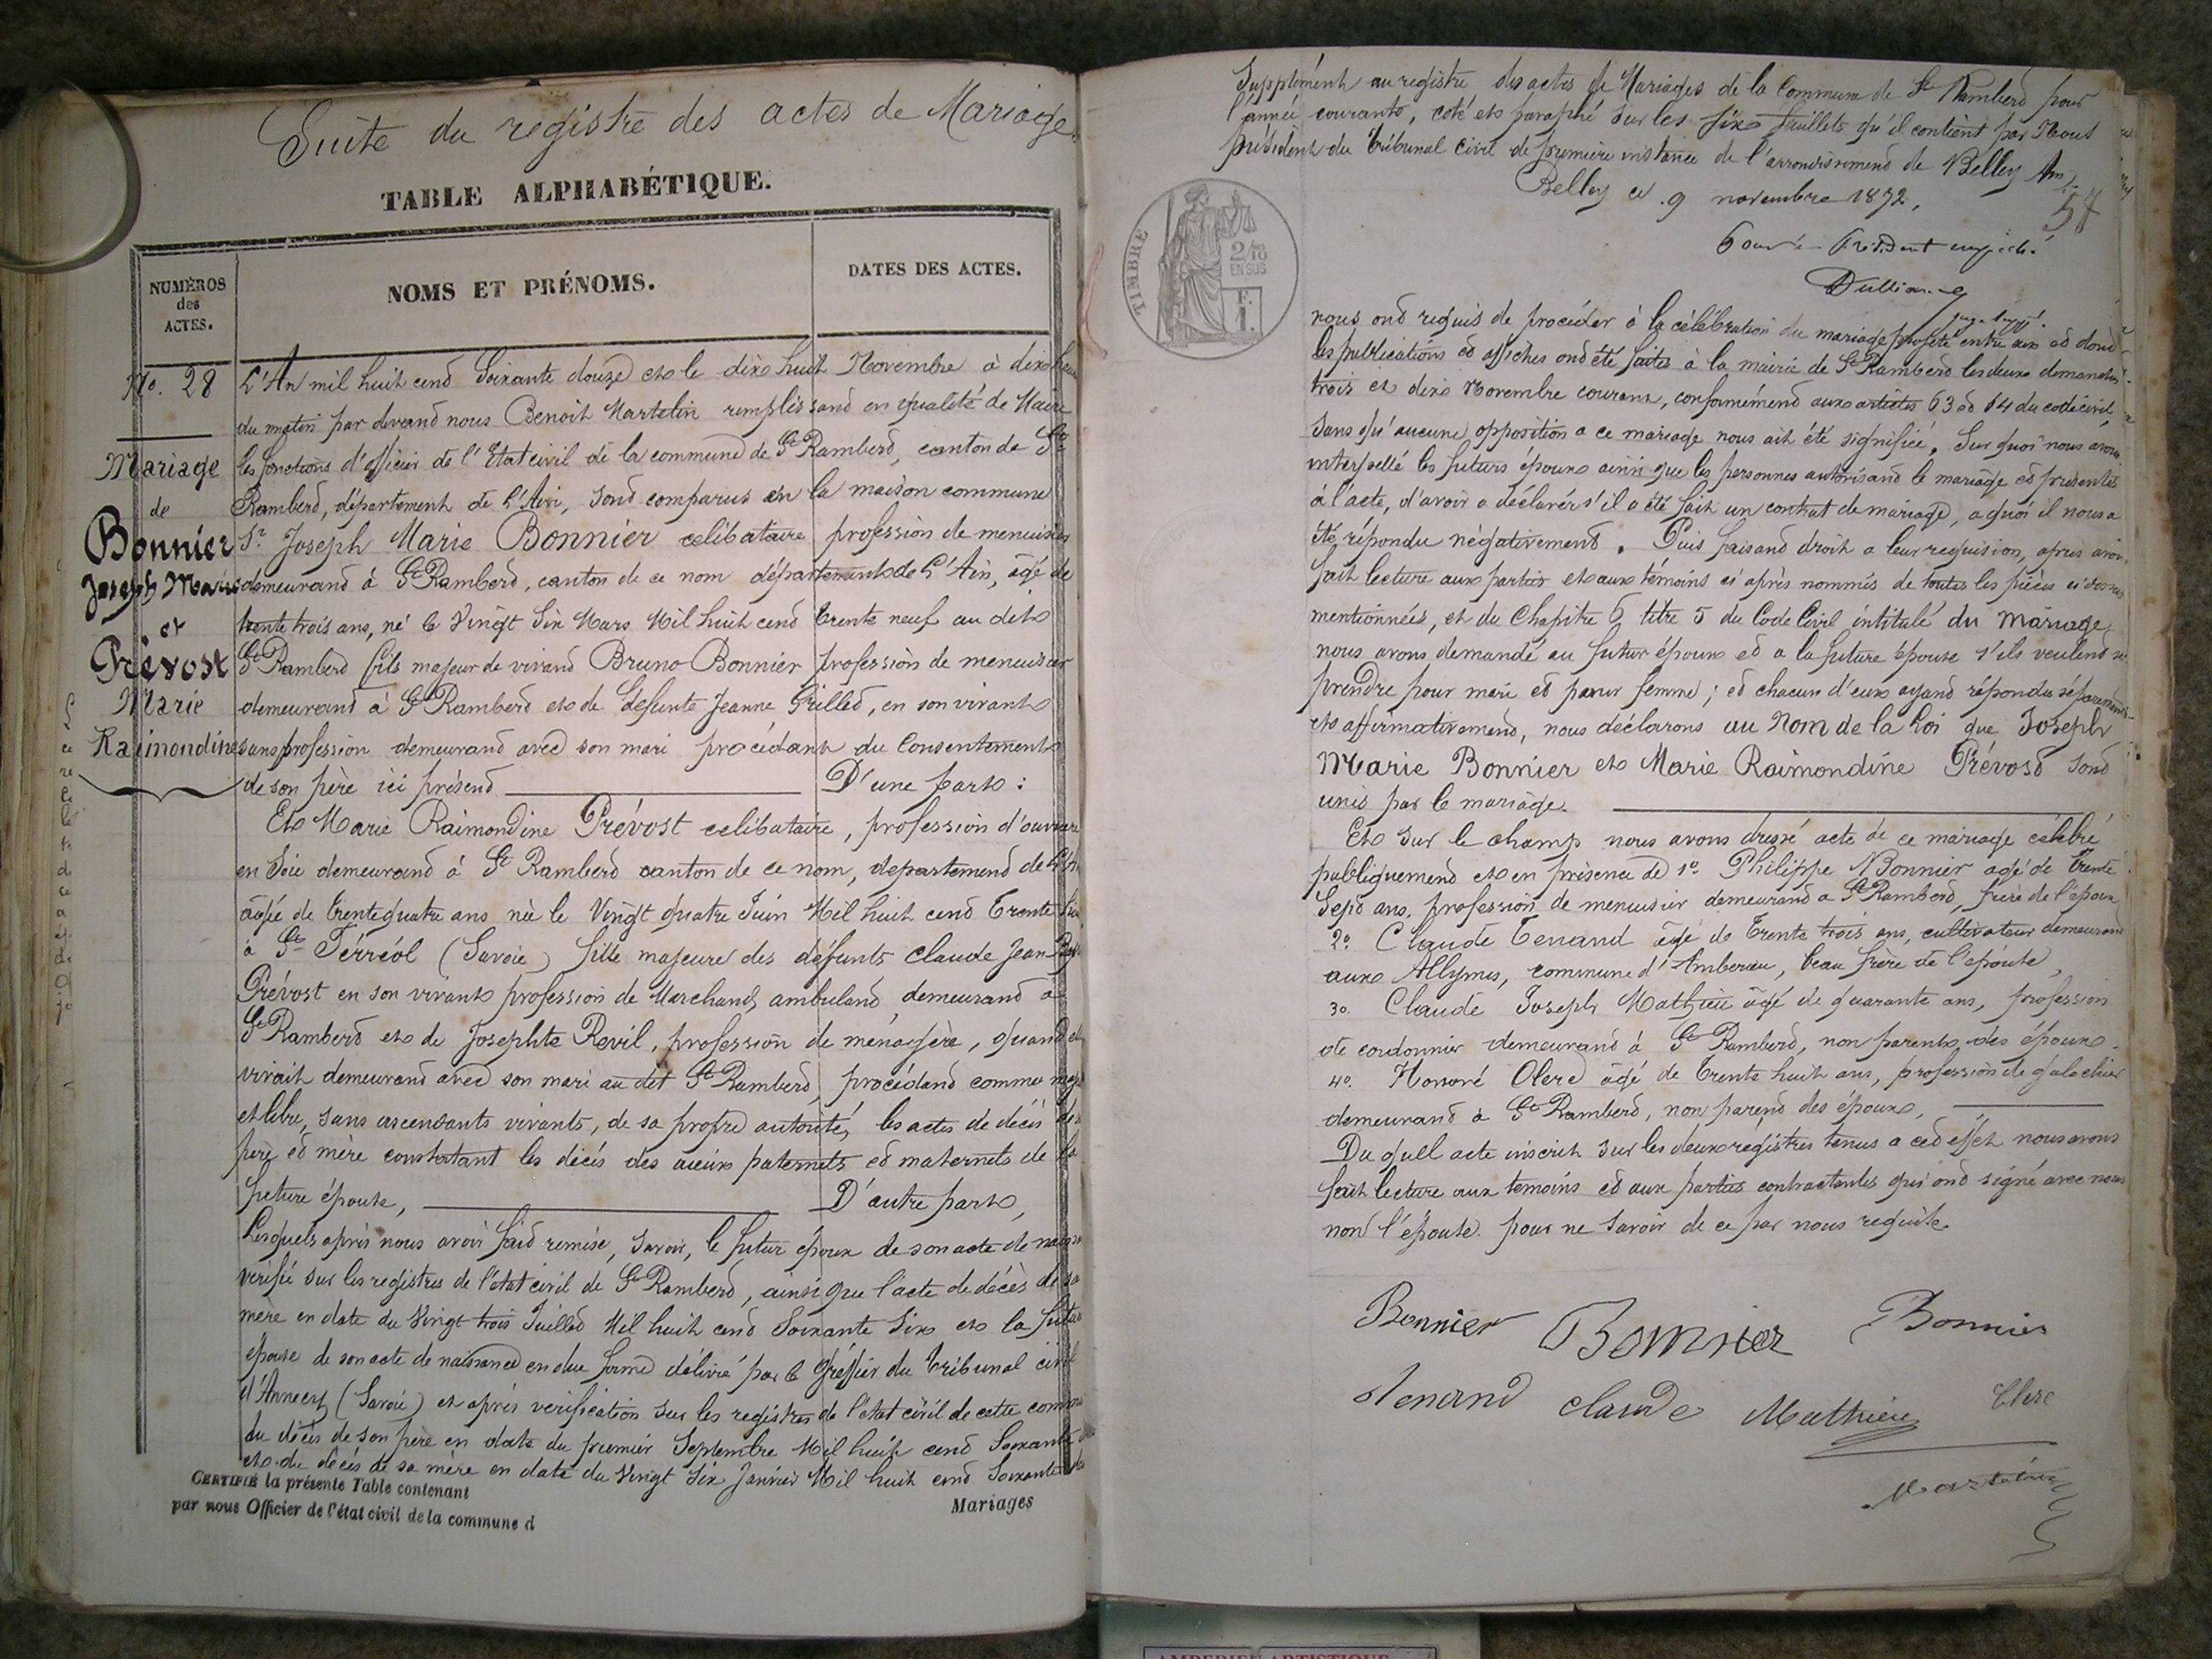 Suite du registre des actes de Mariage
TABLE ALPHABÉTIQUE.
NUMÉROS
des
ACTES.
NOMS ET PRÉNOMS.
DATES DES ACTES.
No. 28
Mariage
de
Bonnier
Joseph Marie
et
Prévost
Marie
Raimondine
L'An mil huit cend Soixante douze et le dix huit Novembre à dix heu
du matin par devand nous Benoit Martelin remplissand en qualité de Maire
les fonctions d'officier de l'Etat civil de la commune de St Ramberd, canton de St
Ramberd, département de L'Ain, sond comparus en la maison commune
Sr. Joseph Marie Bonnier celibataire profession de menuisier
demeurand à St Ramberd, canton de ce nom département de L'Ain, âgé de
trente trois ans, né le Vingt Six Mars Mil huit cend trente neuf au dit
St Ramberd fils majeur de vivand Bruno Bonnier profession de menuisier
demeurand à St Ramberd et de défunte Jeanne Grilled, en son vivant
sans profession demeurand avec son mari procédant du Consentement
de son père ici présend D'une part :
Et Marie Raimondine Prévost celibataire, profession d'ouvrière
en Soie demeurand à St Ramberd canton de ce nom, departemend de L'Ain
âgée de trente quatre ans née le Vingt quatre Juin Mil huit cend Trente huit
à St Férréol (Savoie) fille majeure des défunts Claude Jean
Prévost en son vivant profession de Marchand ambuland, demeurand à
St Ramberd et de Josephte Revil, profession de ménagère, quand elle
vivait demeurand avec son mari au dit St Ramberd, procédand comme maj
et libre, sans ascendants vivants, de sa propre autorité, les actes de décès des
père ed mère constatant les décès des aïeux paternels ed maternels de la
future épouse, D'autre part,
Lesquels après nous avoir faid remise, savoir, le futur époux de son acte de naiss
verifié sur les registres de l'état civil de St Ramberd, ainsi que l'acte de décès de sa
mère en date du Vingt trois Juilled Mil huit cend Soixante Six et la future
épouse de son acte de naissance en due forme délivré par le Greffier du tribunal civil
d'Annecy (Savoie) et après verification sur les registres de l'état civil de cette commu
du décès de son père en date du premier Septembre Mil huit cend Soixante
et du décès de sa mère en date du Vingt Six Janvier Mil huit cend Soixante
CERTIFIÉ la présente Table contenant
Mariages
par nous Officier de l'état civil de la commune d
Supplément au registre des actes de Mariages de la Commune de St Ramberd pour
l'année courante, coté et paraphé sur les six feuillets qu'il contient par Nous
président du tribunal civil de première instance de l'arrondissemend de Belley Ain
Belley ce 9 novembre 1872,
57
Pour le Président empêché
TIMBRE
2/10
EN SUS
F.
1.
nous ond requis de procéder à la célébration du mariage projeté entre eux ed dond
les publications ed affiches ond été faites à la mairie de St Ramberd les deux dimanches
trois et dix Novembre courant, conformémend aux articles 63 ed 64 du code civil,
Sans qu'aucune opposition a ce mariage nous ait été signifiée. Sur quoi nous avons
interpellé les futurs époux ainsi que les personnes autorisand le mariage ed présentes
à l'acte, d'avoir a déclarer s'il a été fait un contrat de mariage, a quoi il nous a
été répondu négativement. Puis faisand droit a leur requisition, après avoir
fait lecture aux parties et aux témoins ci après nommés de toutes les pièces ci dessus
mentionnées, et du Chapitre 6 titre 5 du Code Civil intitulé du Mariage
nous avons demandé au futur époux ed a la future épouse s'ils veulend se
prendre pour mari ed pour femme ; ed chacun d'eux ayand répondu séparément
et affirmativemend, nous déclarons au Nom de la Loi que Joseph
Marie Bonnier et Marie Raimondine Prévosd sond
unis par le mariage.
Et sur le champ nous avons dressé acte de ce mariage célébré
publiquemend et en présence de 1o. Philippe Bonnier agé de trente
Sepd ans, profession de menuisier demeurand a St Ramberd, frère de l'époux
2o. Claude Tenand âgé de trente trois ans, cultivateur demeurand
aux Allymes, commune d'Amberieu, beau frère de l'épouse,
3o. Claude Joseph Mathieu âgé de quarante ans, profession
de cordonnier demeurand à St Ramberd, non parent des époux.
4o. Honoré Clerc âgé de trente huit ans, profession de galochier
demeurand à St Ramberd, non parend des époux,
Du quel acte inscrit sur les deux registres tenus a ced effet nous avons
fait lecture aux témoins ed aux parties contractantes qui ond signé avec nous
non l'épouse pour ne savoir de ce par nous requise
Bonnier Bonnier Bonnier
tenand claude Mathieu Clerc
Martelin